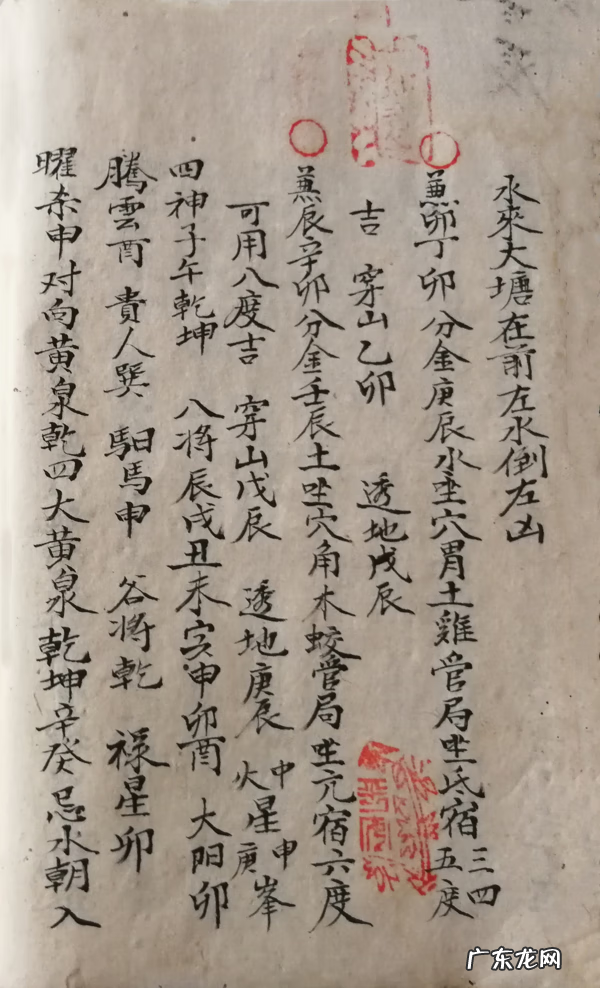 水來大塘在前左水倒左凶
兼卯丁卯分金庚辰水坐穴胃土雞管局坐氐宿三四五度
吉 穿山乙卯 透地戊辰
兼辰辛卯分金壬辰土坐穴角木蛟管局坐亢宿六度
可用八度吉 穿山戊辰 透地庚辰 火中星庚申峯
四神子午乾坤 八将辰戌丑未亥申卯酉 大阳卯
騰雲酉 貴人巽 馹馬申 谷将乾 禄星卯
曜杀申对向黄泉乾四大黄泉乾坤辛癸忌水朝入
广东龙网